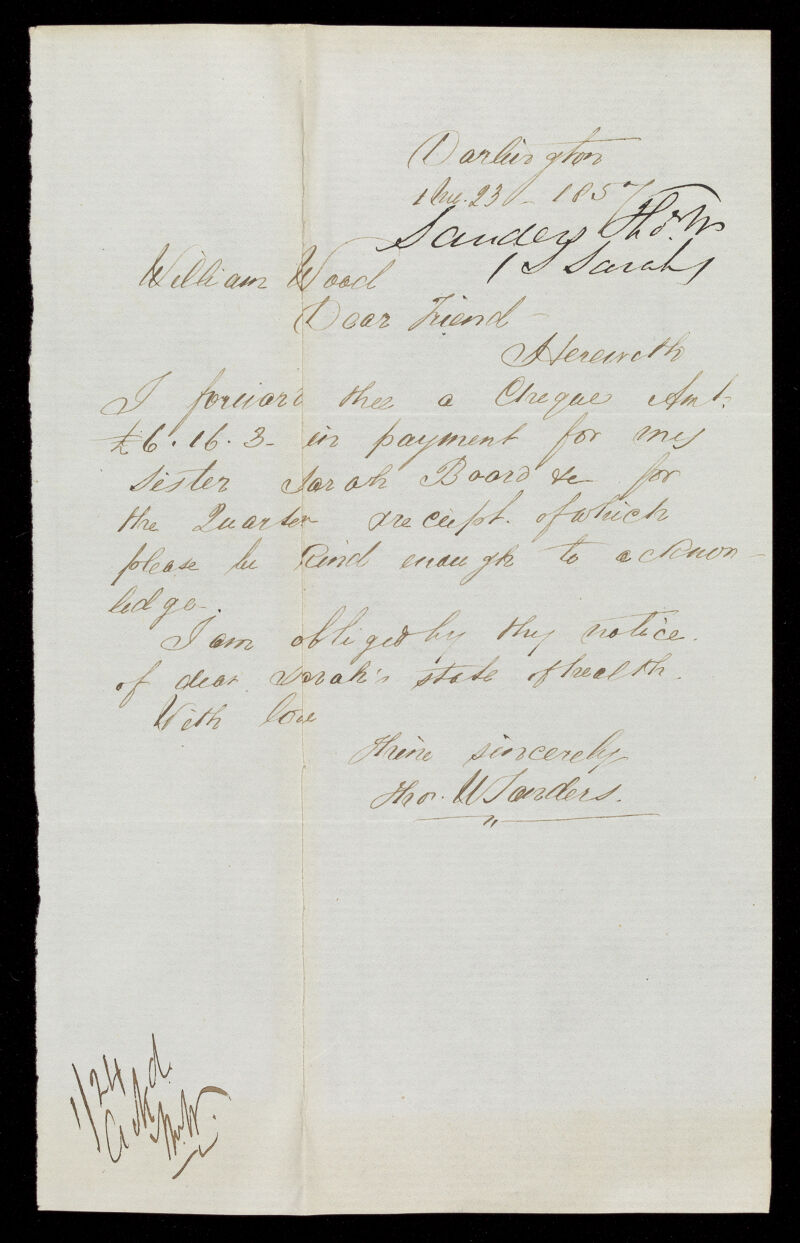 Darlington
1 Mo. 23 - 1857
Sanders Thos. W
( S Sarah )
William Wood
Dear Friend -
Herewith
I forward thee a Cheque Amt.
£6.16.3 - in payment for my
Sister Sarah Board &c for
the Quarter receipt of which
please be Kind enough to acknow-
ledge.
I am obliged by thy notice
of dear Sarah's state of health.
With love
thine sincerely
Thos. W Sanders.
1/24
Ackd.
W.